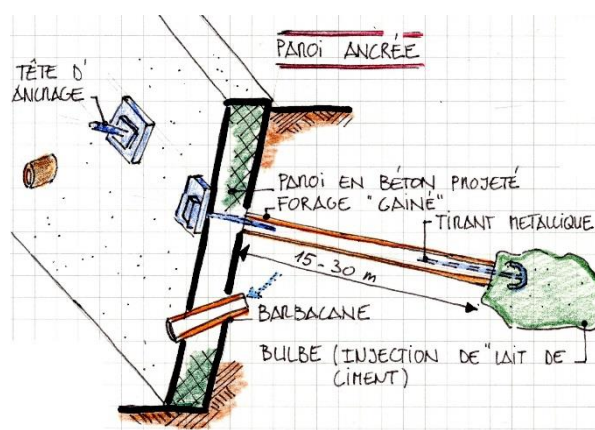 PAROI ANCRÉE
TÊTE D'
ANCRAGE
PAROI EN BÉTON PROJETÉ
FORAGE "GAINÉ"
TIRANT METALLIQUE
15-30 m
BARBACANE
BULBE (INJECTION DE "LAIT DE
CIMENT)